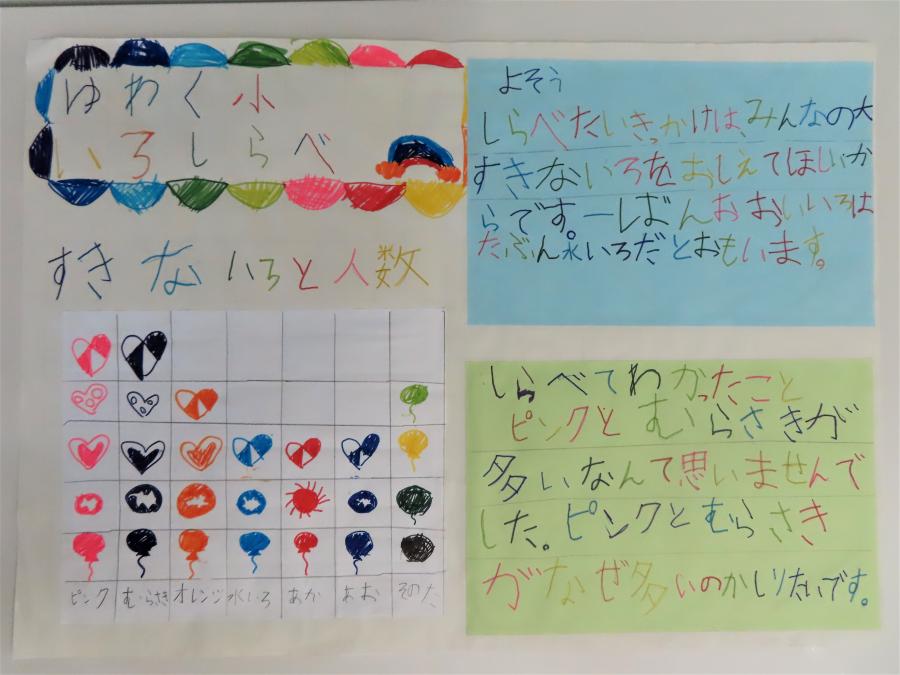 ゆわく小
いろしらべ
すきないろと人数
ピンク むらさき オレンジ 水いろ あか あお そのた
よそう
しらべたいきっかけは、みんなの大
すきないろをおしえてほしいか
らです。一ばんおおいいろは
たぶん水いろだとおもいます。
しらべてわかったこと
ピンクとむらさきが
多いなんて思いませんで
した。ピンクとむらさき
がなぜ多いのかしりたいです。